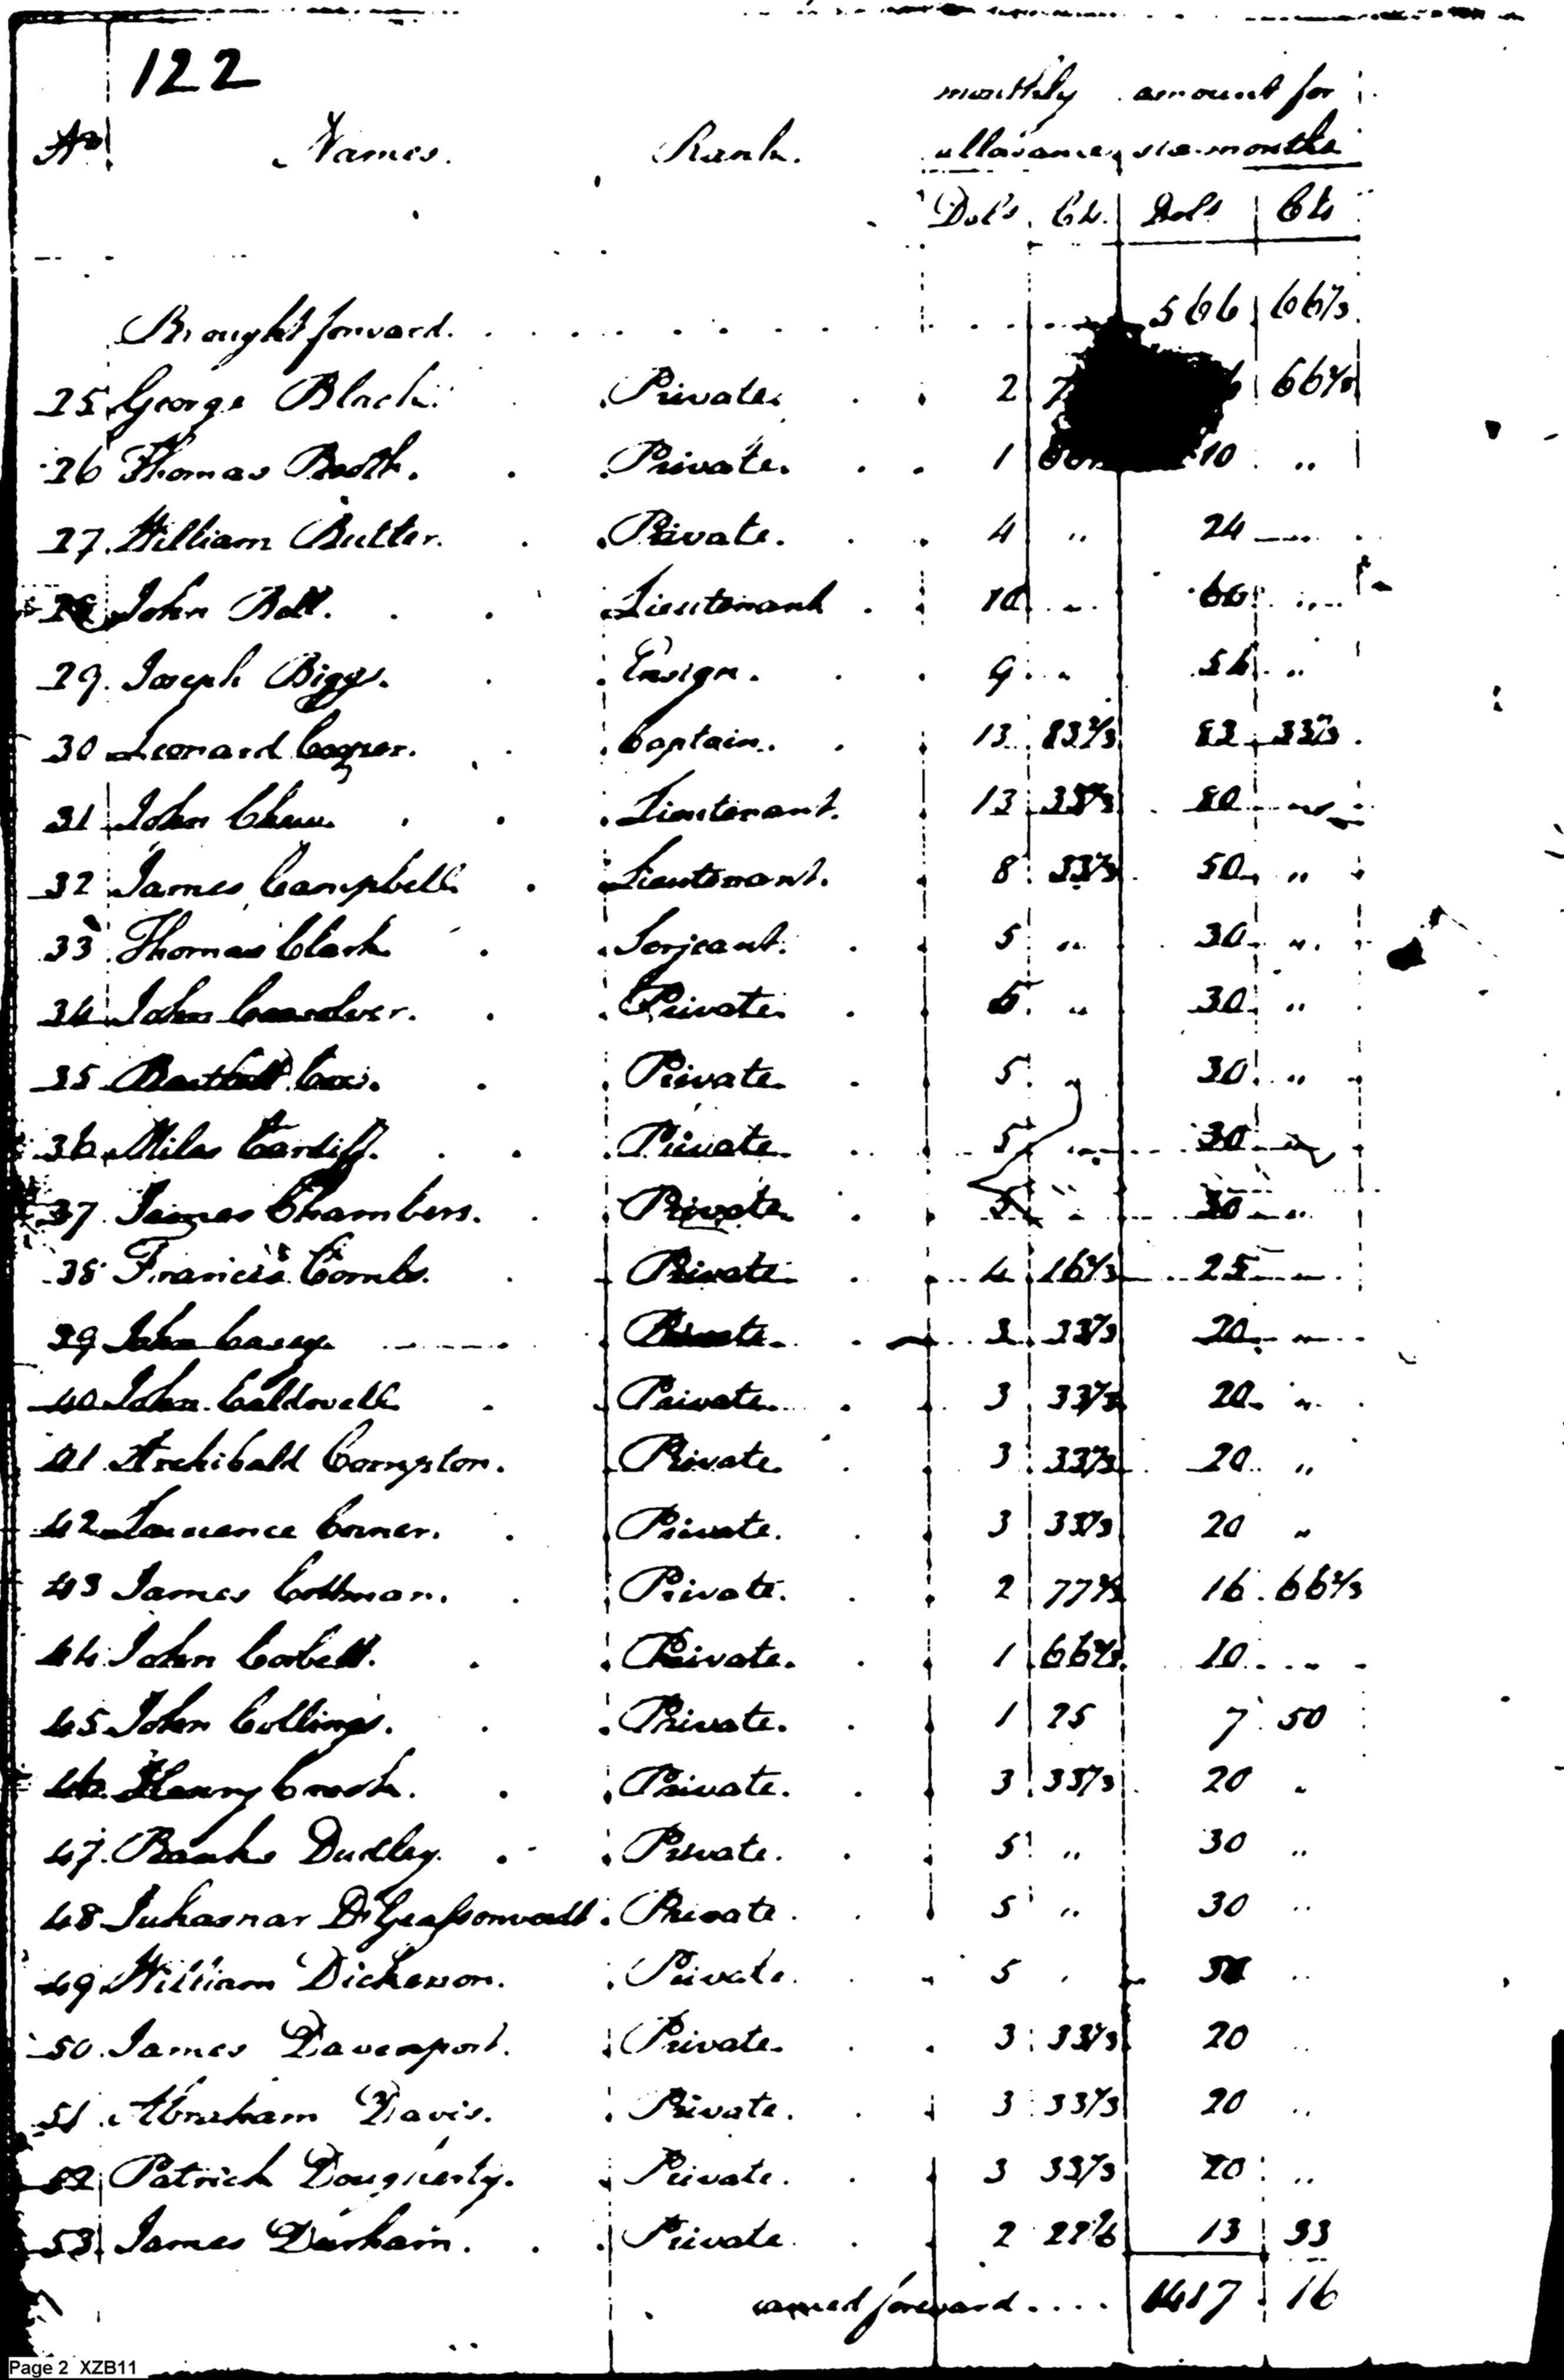 122
monthly amount for
No Names. Rank. allowance, six months
Dols. Cts. Dols Cts
Brought forward. 566 66 2/3
25 George Black. Private. 2 66 2/3
26 Thomas Booth. Private. 1 10 "
27. William Butler. Private. 4 " 24
28 John Bell. Lieutenant 10 60
29. Joseph Biggs. Ensign. 9 " 54 "
30 Leonard Cooper. Captain. 13 83 1/3 83 33 1/3
31 John Chew. Lieutenant. 13 33 1/3 80
32 James Campbell Lieutenant. 8 33 1/3 50 "
33 Thomas Clark Serjeant. 5 " 30 "
34 John Private 5 " 30 "
35 Private 5 " 30 "
36 Miles Cardiff. Private. 5 " 30
37. James Chambers. Private. 5 " 30 "
38 Francis Combs. Private 4 16 2/3 25
39 John Casey. Private. 3 33 1/3 20 "
40 John Caldwell Private. 3 33 1/3 20 "
41 Archibald Compton. Private 3 33 1/3 20 "
42 Lawrence Corner. Private. 3 33 1/3 20 "
43 James Coleman. Private. 2 77 2/3 16 66 2/3
44 John Corbett. Private. 1 66 2/3 10
45 John Collings. Private. 1 25 7 50
46 Henry Crook. Private. 3 33 1/3 20 "
47. Banks Dudley. Private. 5 " 30 "
48 Private. 5 " 30 "
49 William Dickenson. Private. 5 30 "
50. James Davenport. Private. 3 33 1/3 20 "
51. Abraham Davis. Private. 3 33 1/3 20 "
52 Patrick Dougherty. Private. 3 33 1/3 20 "
53 James Durham. Private. 2 13 33
carried forward.... 1417 16
Page 2 XZB11